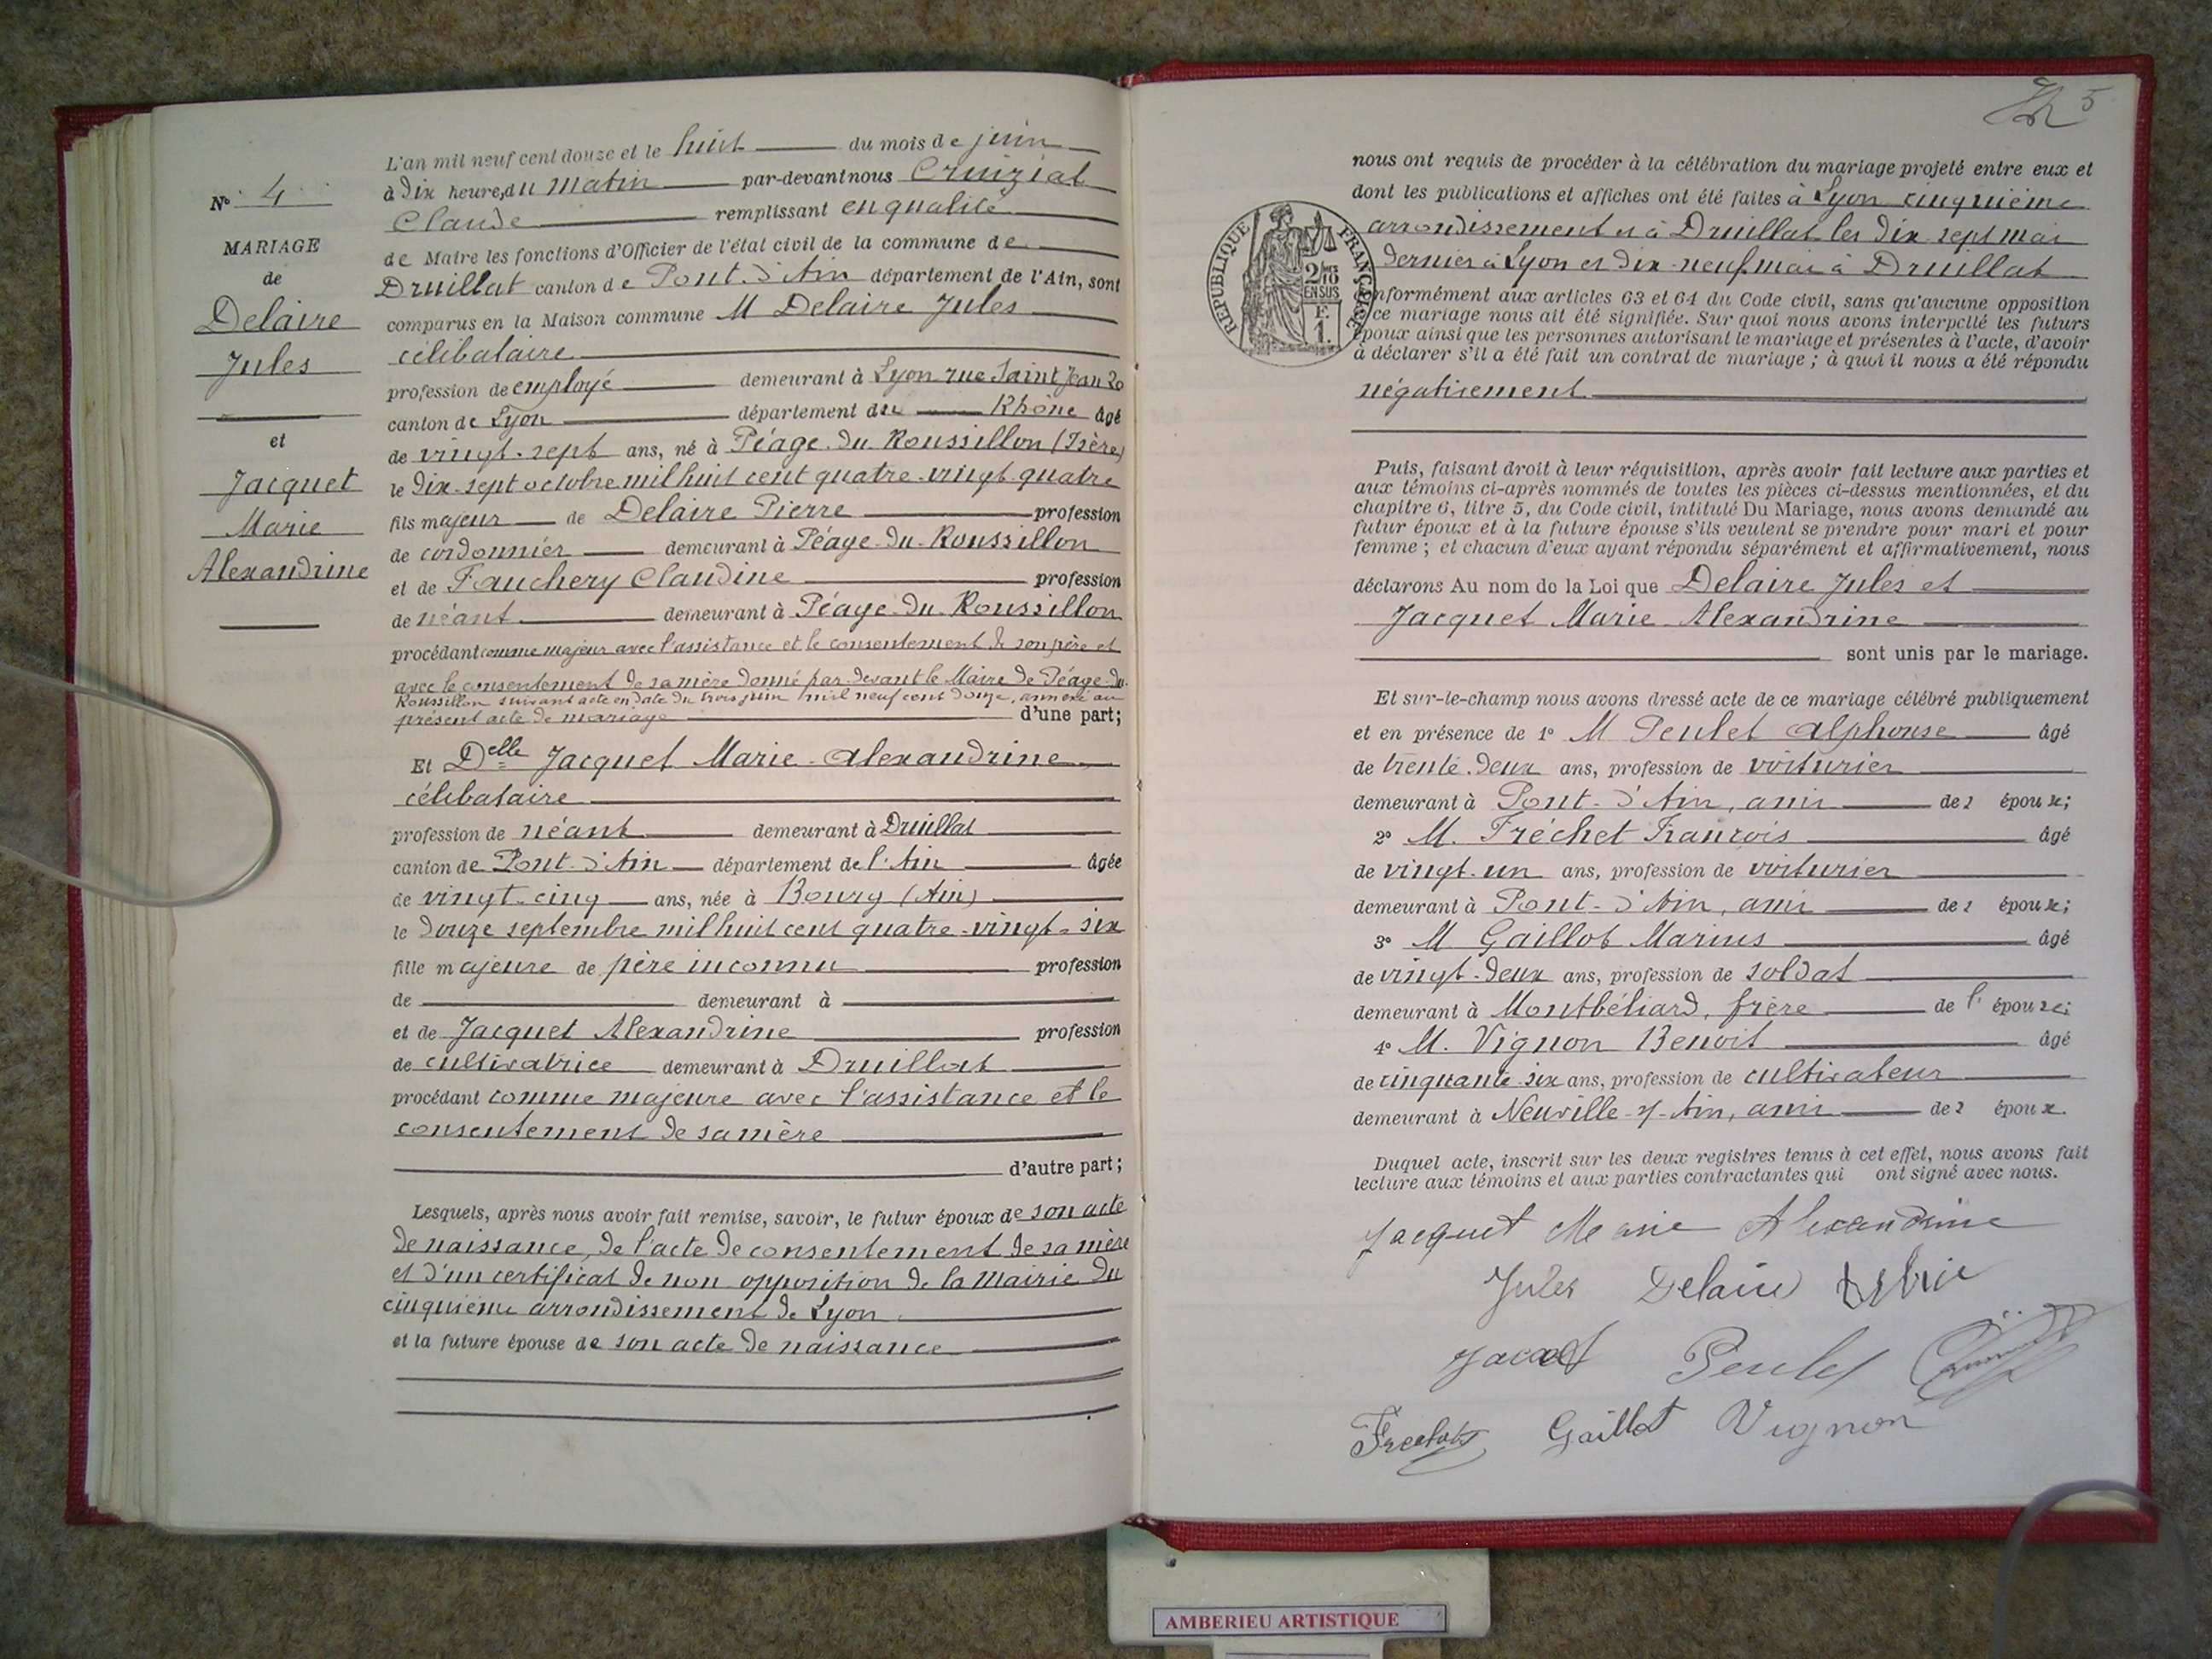 N° 4
MARIAGE
de
Delaire
Jules
et
Jacquet
Marie
Alexandrine
L'an mil neuf cent douze et le huit du mois de juin
à dix heures du matin par-devant nous Cruiziat
Claude remplissant en qualité
de Maire les fonctions d'Officier de l'état civil de la commune de
Druillat canton de Pont-d'Ain département de l'Ain, sont
comparus en la Maison commune M Delaire Jules
célibataire
profession de employé demeurant à Lyon rue Saint Jean 20
canton de Lyon département du Rhône âgé
de vingt-sept ans, né à Péage-du-Roussillon (Isère)
le dix-sept octobre mil huit cent quatre-vingt-quatre
fils majeur de Delaire Pierre profession
de cordonnier demeurant à Péage-du-Roussillon
et de Fauchery Claudine profession
de néant demeurant à Péage-du-Roussillon
procédant comme majeur avec l'assistance et le consentement de son père et
avec le consentement de sa mère donné par-devant le Maire de Péage-du-
Roussillon suivant acte en date du trois juin mil neuf cent douze, annexé au
présent acte de mariage d'une part;
Et Delle Jacquet Marie-Alexandrine
célibataire
profession de néant demeurant à Druillat
canton de Pont-d'Ain département de l'Ain âgée
de vingt-cinq ans, née à Bourg (Ain)
le douze septembre mil huit cent quatre-vingt-six
fille majeure de père inconnu profession
de demeurant à
et de Jacquet Alexandrine profession
de cultivatrice demeurant à Druillat
procédant comme majeure avec l'assistance et le
consentement de sa mère
d'autre part;
Lesquels, après nous avoir fait remise, savoir, le futur époux de son acte
de naissance, de l'acte de consentement de sa mère
et d'un certificat de non opposition de la Mairie du
cinquième arrondissement de Lyon
et la future épouse de son acte de naissance
5
nous ont requis de procéder à la célébration du mariage projeté entre eux et
dont les publications et affiches ont été faites à Lyon cinquième
arrondissement et à Druillat les dix-sept mai
dernier à Lyon et dix-neuf mai à Druillat
conformément aux articles 63 et 64 du Code civil, sans qu'aucune opposition
à ce mariage nous ait été signifiée. Sur quoi nous avons interpellé les futurs
époux ainsi que les personnes autorisant le mariage et présentes à l'acte, d'avoir
à déclarer s'il a été fait un contrat de mariage; à quoi il nous a été répondu
négativement
REPUBLIQUE FRANÇAISE
2/10
EN SUS
F.
1.
Puis, faisant droit à leur réquisition, après avoir fait lecture aux parties et
aux témoins ci-après nommés de toutes les pièces ci-dessus mentionnées, et du
chapitre 6, titre 5, du Code civil, intitulé Du Mariage, nous avons demandé au
futur époux et à la future épouse s'ils veulent se prendre pour mari et pour
femme; et chacun d'eux ayant répondu séparément et affirmativement, nous
déclarons Au nom de la Loi que Delaire Jules et
Jacquet Marie-Alexandrine
sont unis par le mariage.
Et sur-le-champ nous avons dressé acte de ce mariage célébré publiquement
et en présence de 1° M Peulet Alphonse âgé
de trente-deux ans, profession de voiturier
demeurant à Pont-d'Ain, ami des époux;
2° M. Fréchet François âgé
de vingt-un ans, profession de voiturier
demeurant à Pont-d'Ain, ami des époux;
3° M Gaillot Marius âgé
de vingt-deux ans, profession de soldat
demeurant à Montbéliard, frère de l'épouse;
4° M. Vignon Benoit âgé
de cinquante-six ans, profession de cultivateur
demeurant à Neuville-s/-Ain, ami des époux.
Duquel acte, inscrit sur les deux registres tenus à cet effet, nous avons fait
lecture aux témoins et aux parties contractantes qui ont signé avec nous.
Jacquet Marie Alexandrine
Jules Delaire
Peulet
Gaillot Vignon
AMBERIEU ARTISTIQUE